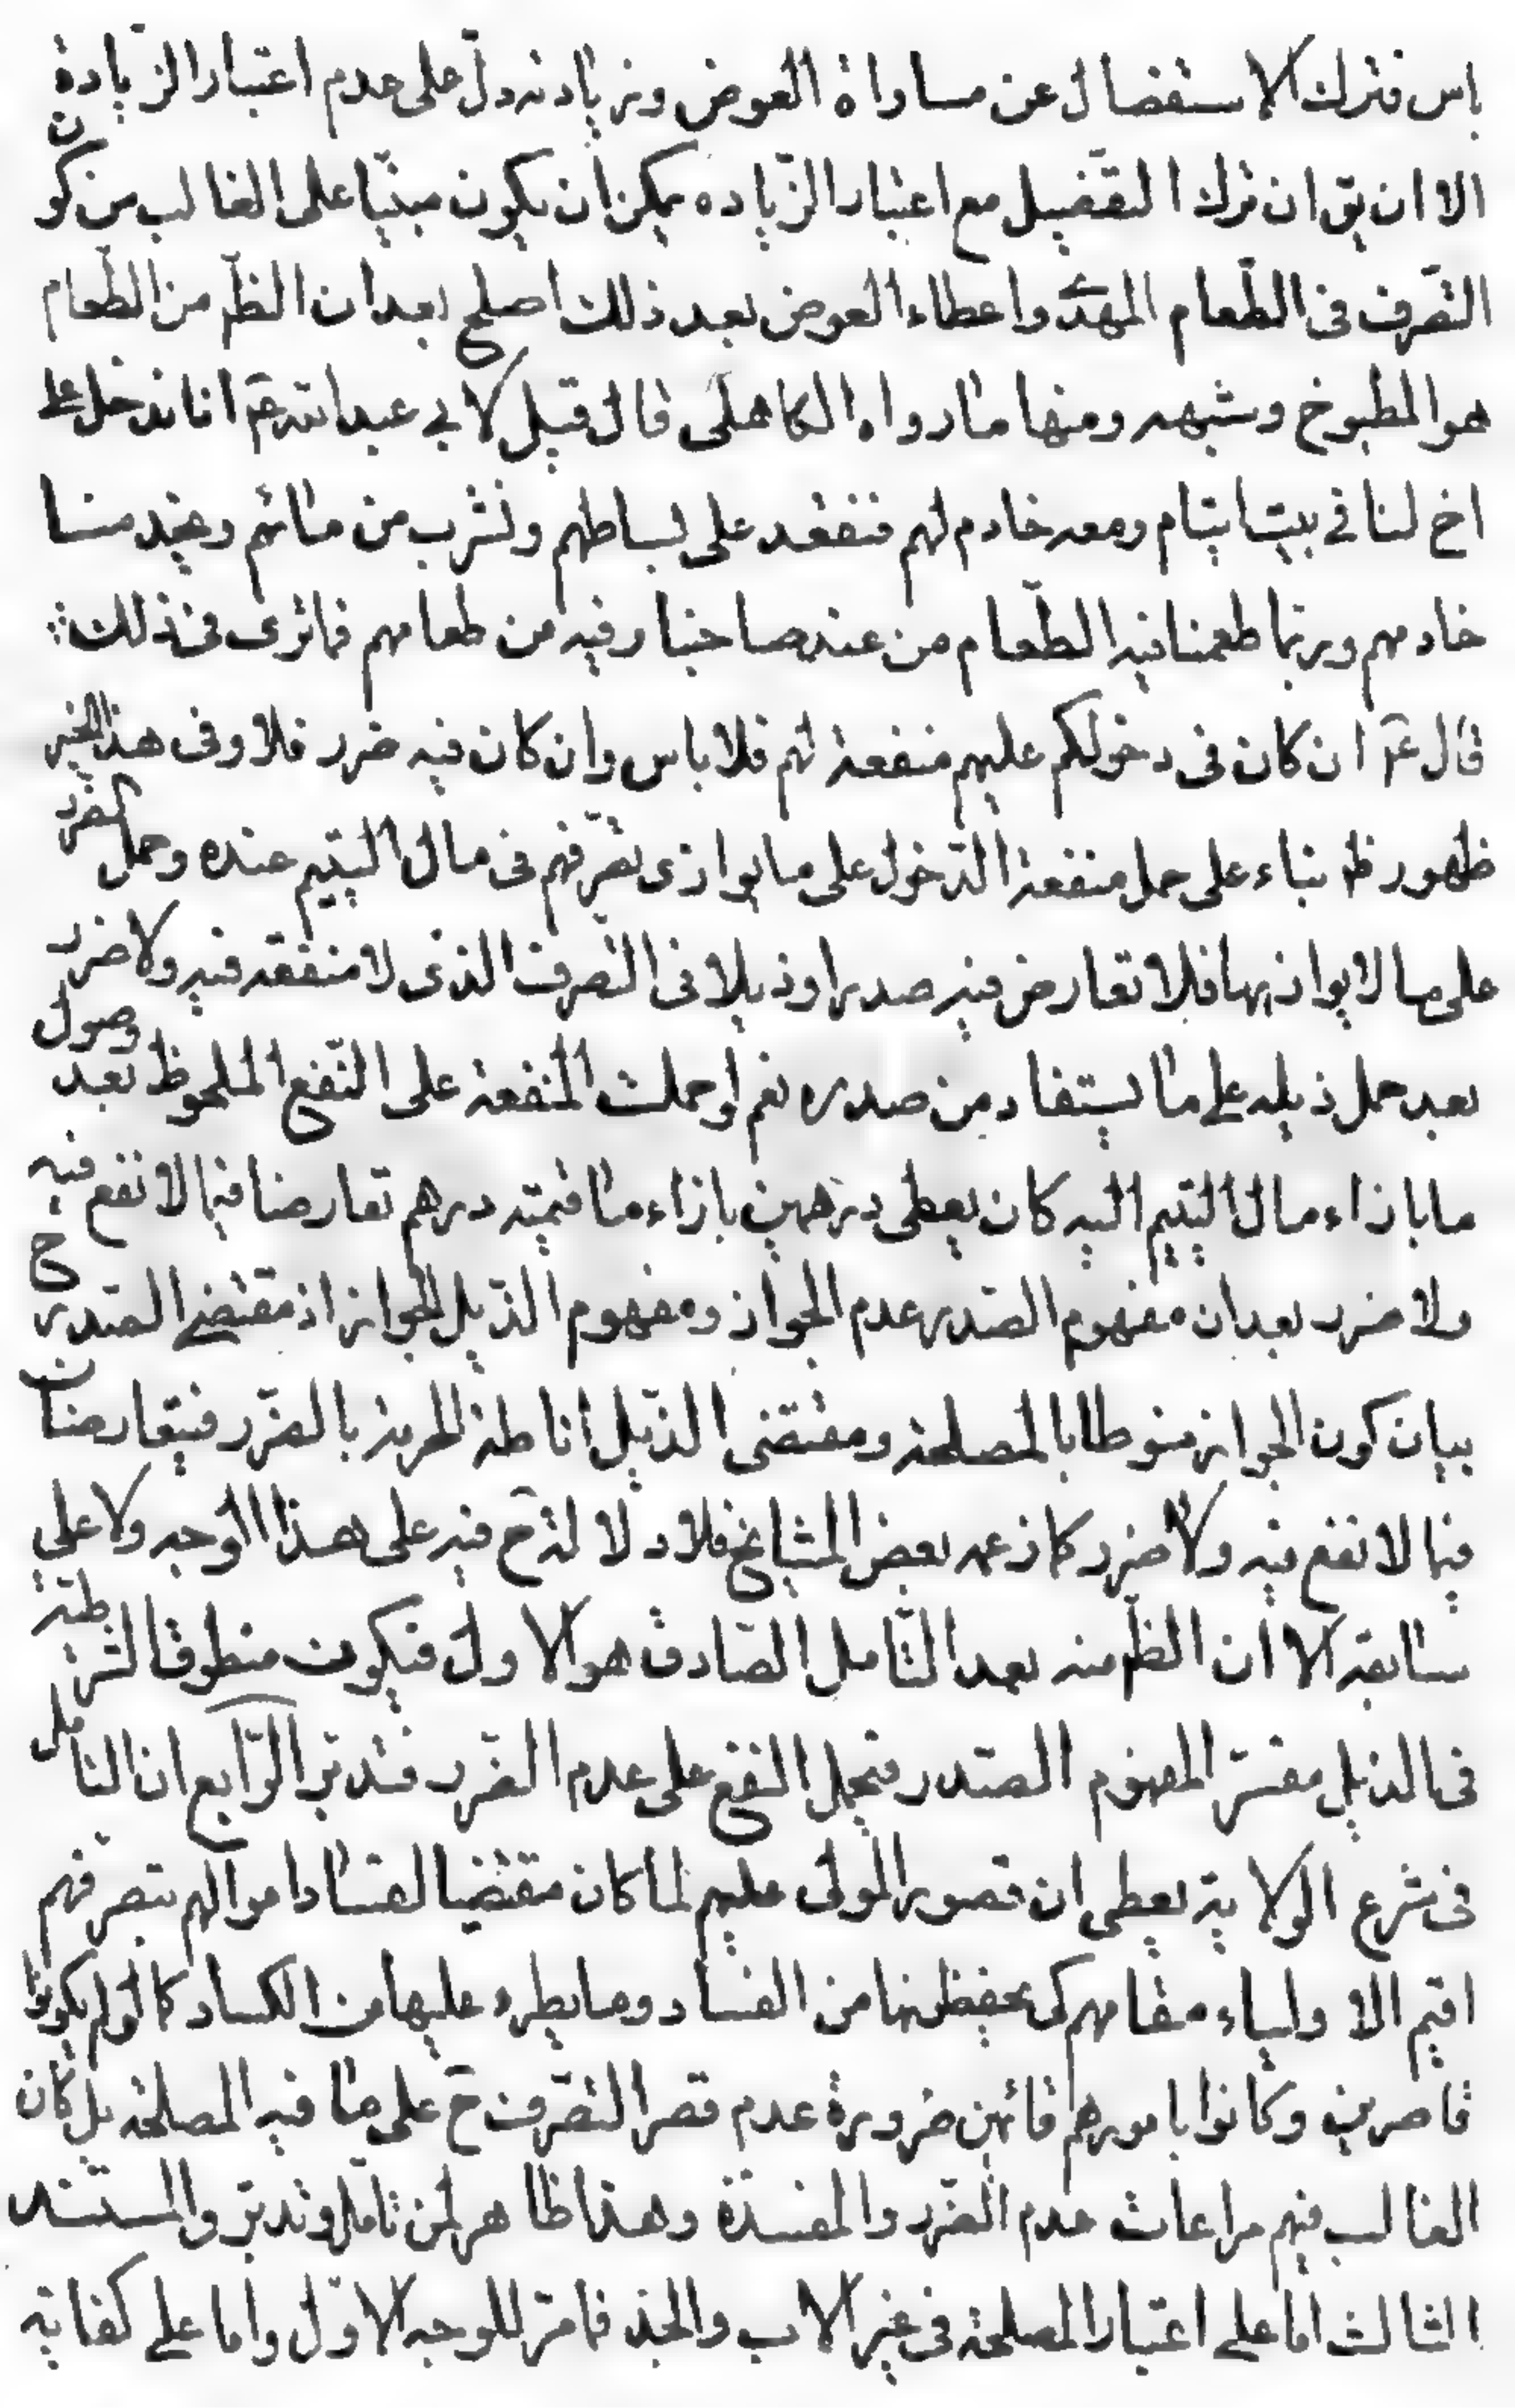 باس فترك الاستفصال عن مساواة العوض وزيادته دلّ على عدم اعتبار الزّيادة
الا ان يق ان ترك التفصيل مع اعتبار الزّياده يمكن ان يكون مبنيّا على الغالب من كون
التصّرف فى الطّعام المهدىّ واعطاء العوض بعد ذلك اصلح بعد ان الظّ من الطّعام
هو المطبوخ وشبهه ومنها ما رواه الكاهلى قال قيل لابي عبد الله عم انا ندخل على
اخ لنا فى بيت ايتام ومعه خادم لهم فنقعد على بساطهم ونشرب من مائهم ويخدمنا
خادمهم وربّما طعمنا فيه الطّعام من عند صاحبنا وفيه من طعامهم فما ترى فى ذلك
قال عم ان كان فى دخولكم عليهم منفعة لهم فلا باس وان كان فيه ضرر فلا وفى هذا الخبر
ظهور ظ بناء على حمل منفعة الدّخول على ما يوازى تصّرفهم فى مال اليتيم عنده وحمل الضرر
على ما لا يوازيها فلا تعارض فيه صدرا وذيلا فى التصرف الذى لا منفعة فيه ولا ضرر
بعد حمل ذيله على ما يستفاد من صدره نعم لو حملت المنفعة على النّفع الملحوظ بعد وصول
ما بازاء مال اليتيم اليه كان يعطى درهمين بازاء ما قيمته درهم تعارضا فيما لا نفع فيه
ولا ضرر بعد ان مفهوم الصّدر عدم الجواز ومفهوم الذّيل الجواز اذ مقتضى الصّدر ح
بيان كون الجواز منوطا بالمصلحة ومقتضى الذّيل اناطة الحرمة بالضّرر فيتعارضان
فيما لا نفع فيه ولا ضرر كما زعمه بعض المشايخ فلا دلالة ح فيه على هذا الوجه ولا على
سابقه الا ان الظّ منه بعد التّامل الصّادق هو الاول فيكون منطوق الشرطيّة
فى الذيل مفسّر المفهوم الصّدر فيحمل النفع على عدم الضّرر فتدبّر الرّابع ان التامل
فى شرع الولاية يعطى ان قصور المولى عليهم لما كان مقتضيا لفساد اموالهم بتصرفهم
اقيم الاولياء مقامهم كى يحفظونها من الفساد وما يطرء عليها من الكساد كما لو لم يكونوا
قاصرين وكانوا بامورهم قائمين ضرورة عدم قصر التصّرف ح على ما فيه المصلحة بل كان
الغالب فيهم مراعات عدم الضّرر والمفسدة وهذا ظاهر لمن تامّل وتدبّر والمستند
الثالث اما على اعتبار المصلحة فى غير الاب والجد فما مرّ للوجه الاوّل واما على كفاية